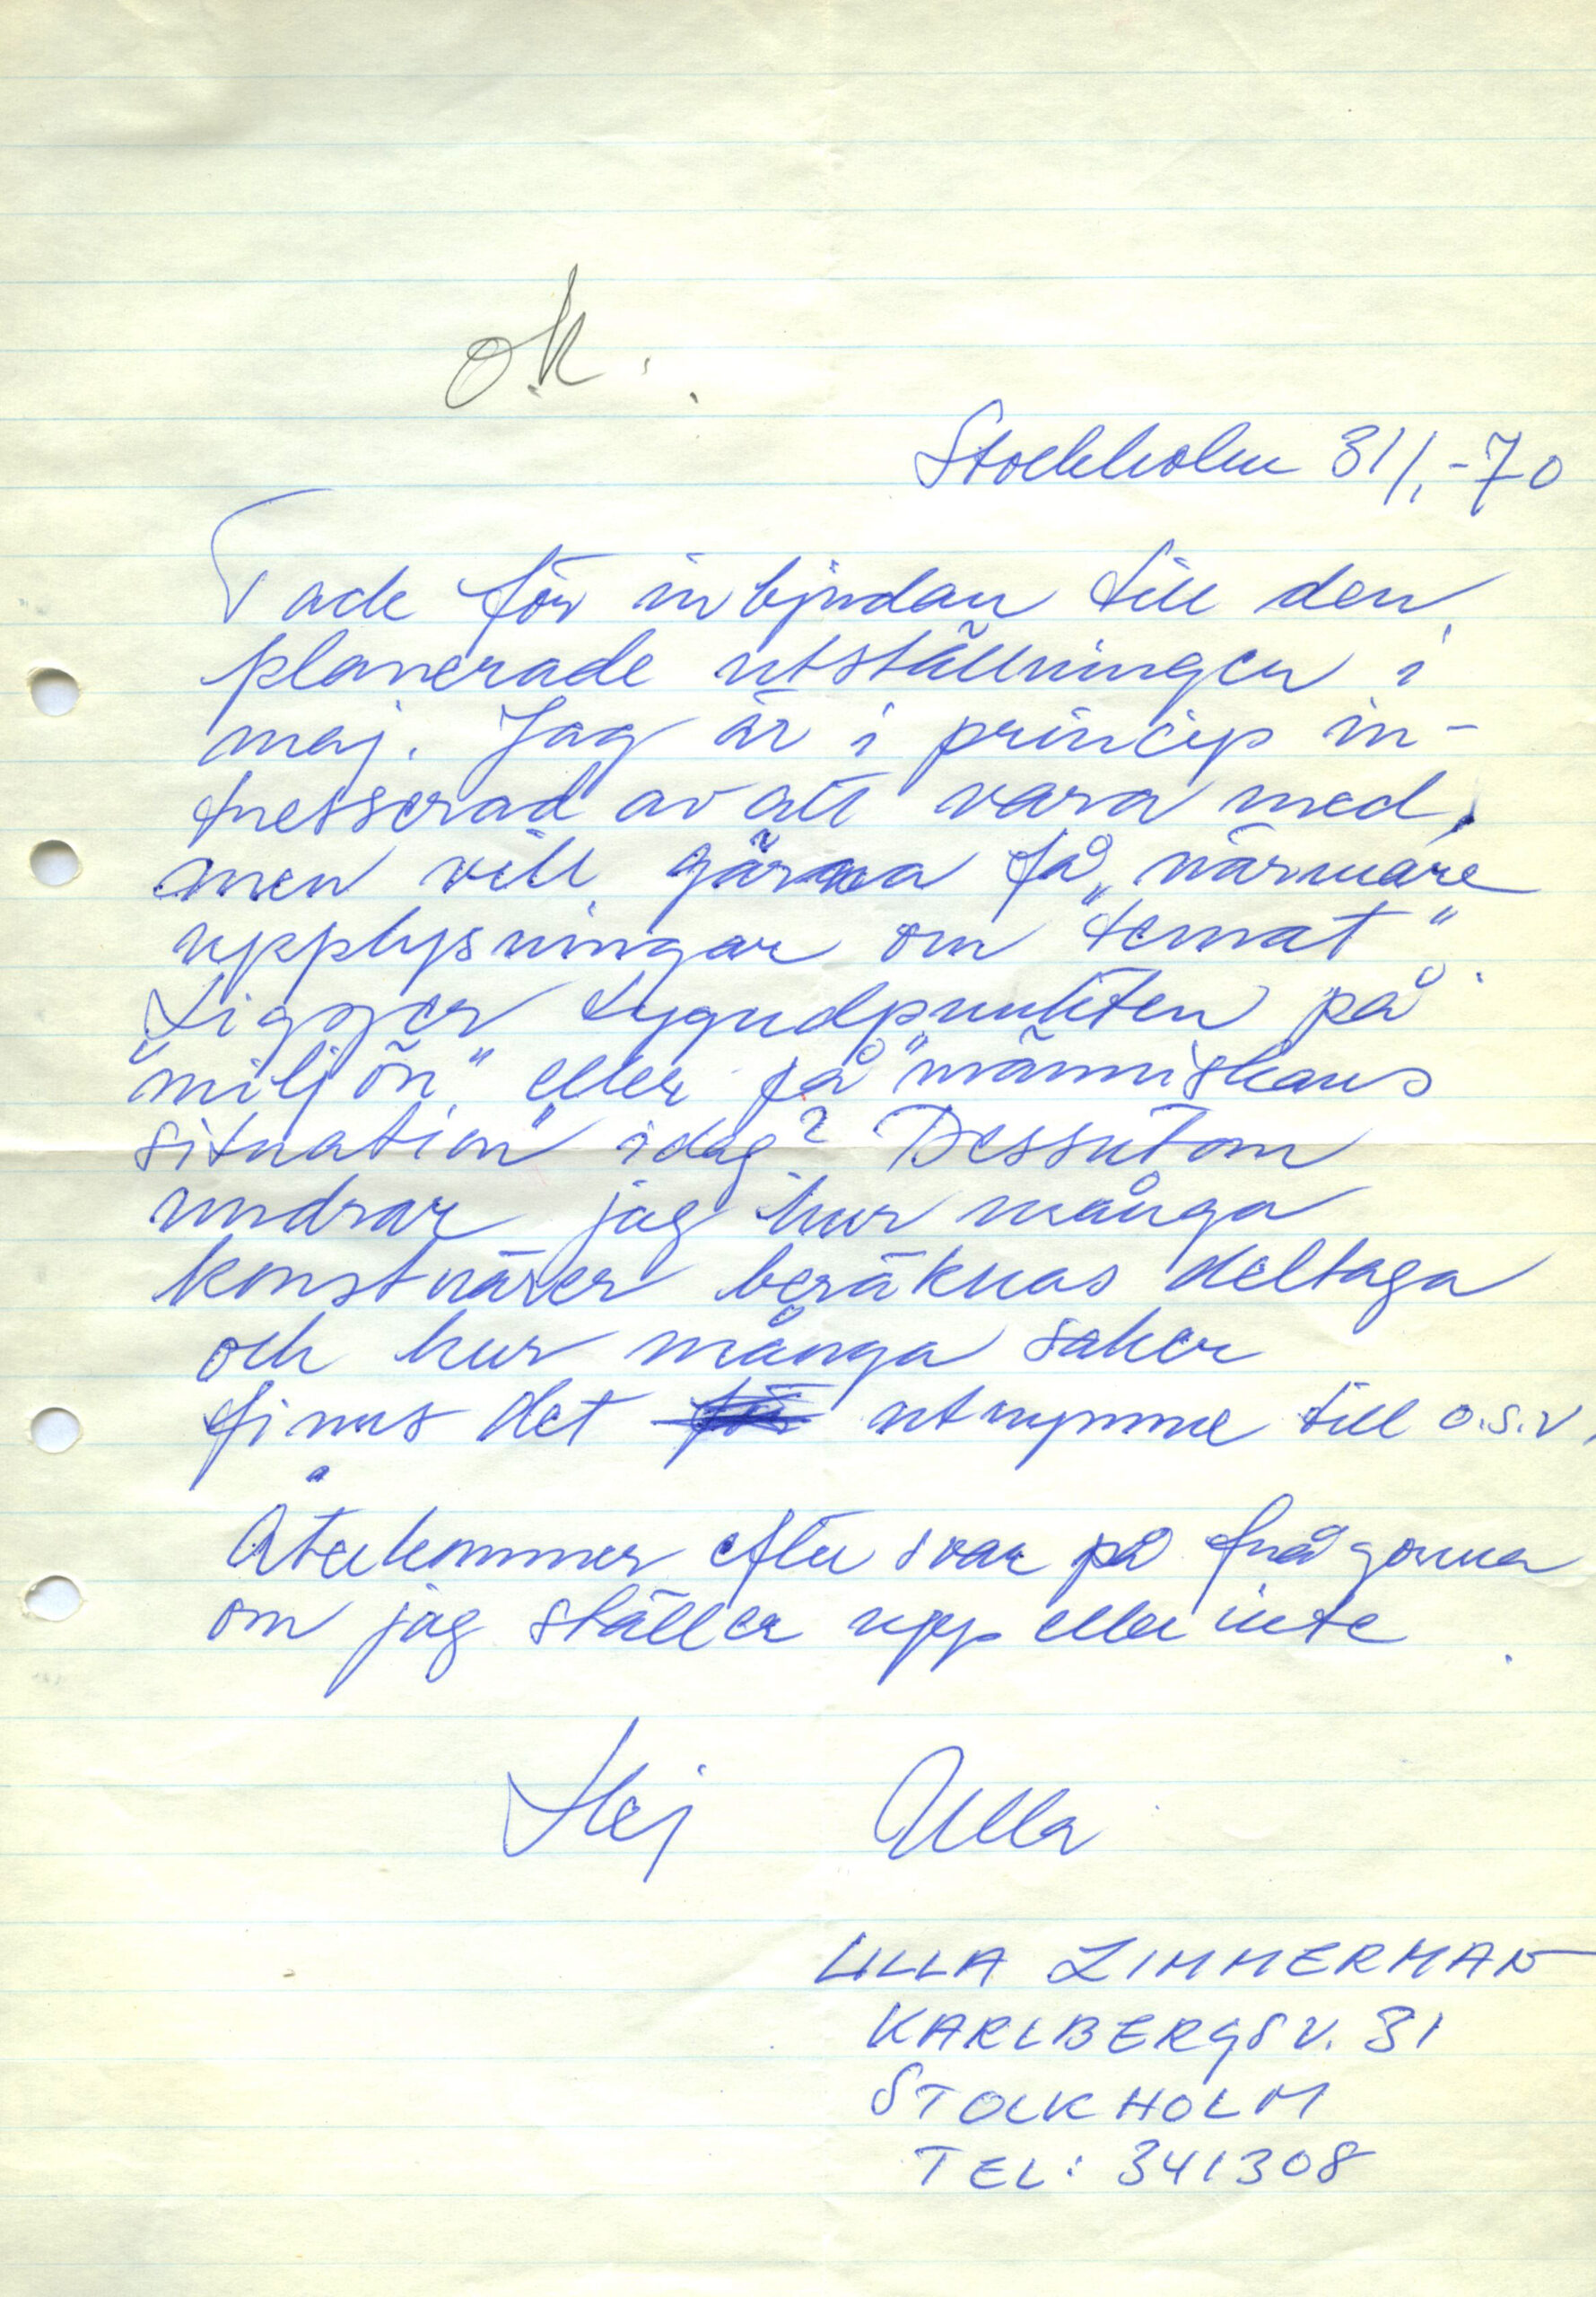 OK.
Stockholm 31/1 -70
Tack för inbjudan till den
planerade utställningen i
maj. Jag är i princip in-
tresserad av att vara med,
men vill gärna få närmare
upplysningar om "temat".
Ligger tygndpunkten på
"miljön" eller på "människans
situation" idag? Dessutom
undrar jag hur många
konstnärer beräknas deltaga
och hur många saker
finns det utrymme till o.s.v.
Återkommer efter svar på frågorna
om jag ställer upp eller inte
Hej Ulla
ULLA ZIMMERMAN
KARLBERGSV. 31
STOCKHOLM
TEL: 341308